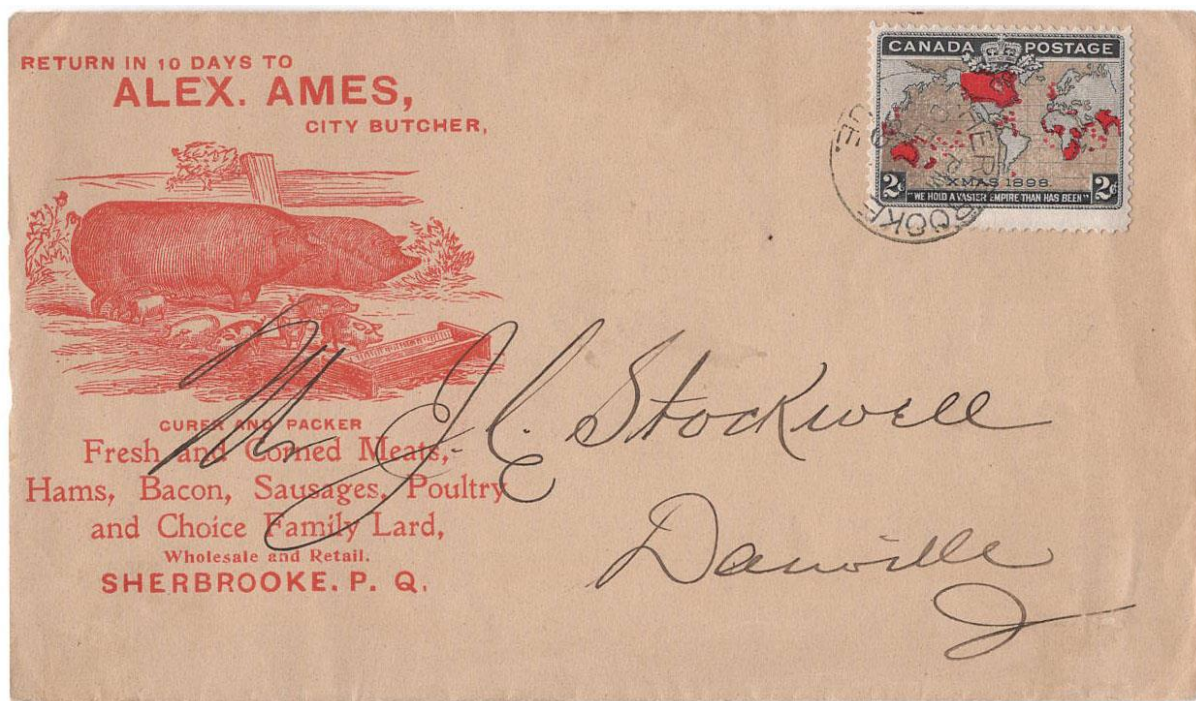 RETURN IN 10 DAYS TO
ALEX. AMES,
CITY BUTCHER,
CURER AND PACKER
Fresh and Corned Meats,
Hams, Bacon, Sausages, Poultry
and Choice Family Lard,
Wholesale and Retail.
SHERBROOKE. P. Q.
CANADA POSTAGE
XMAS 1898
2c 2c
"WE HOLD A VASTER EMPIRE THAN HAS BEEN"
Mr J C Stockwell
Danville